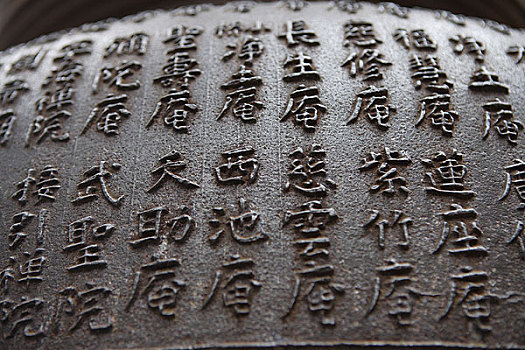 淨土庵
福慧庵
慈修庵
長生庵
山淨土庵
聖壽庵
彌陀庵
壽禪院
蓮座庵
紫竹庵
慈雲庵
西池庵
天助庵
武聖院
接引禪院